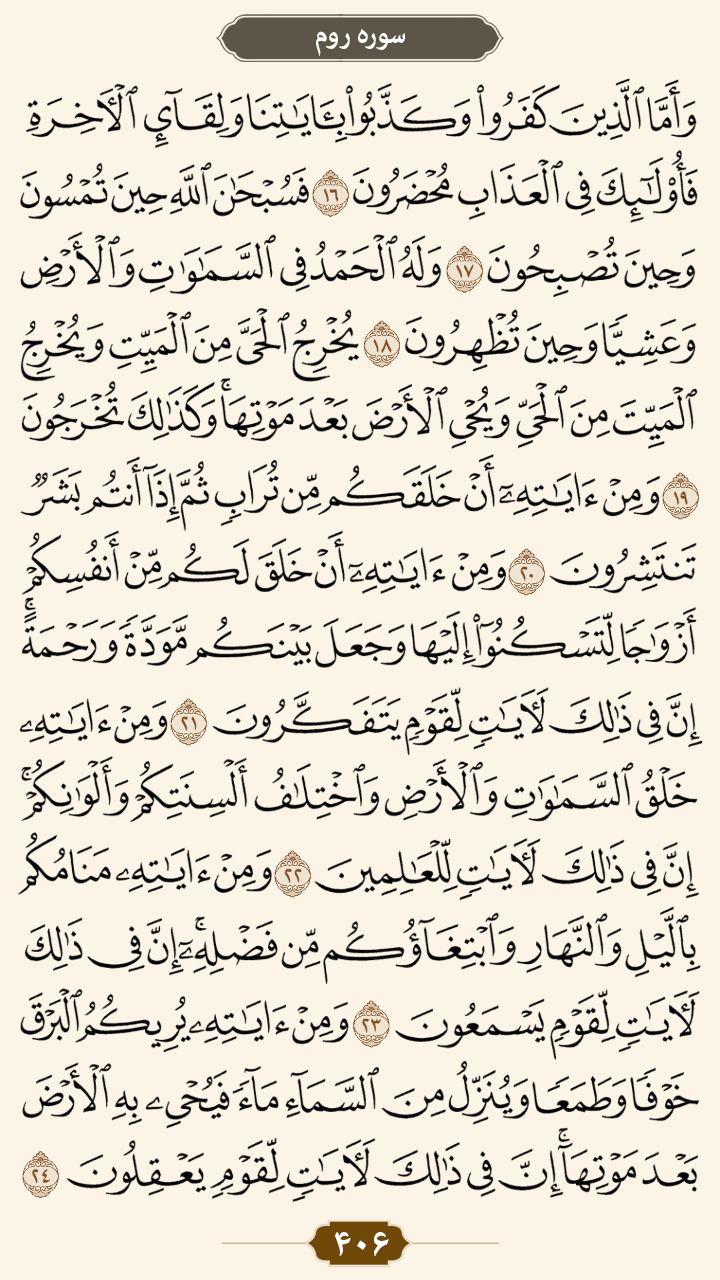 سوره روم
وَأَمَّا ٱلَّذِينَ كَفَرُوا۟ وَكَذَّبُوا۟ بِـَٔايَـٰتِنَا وَلِقَآئِ ٱلْـَٔاخِرَةِ
فَأُو۟لَـٰٓئِكَ فِى ٱلْعَذَابِ مُحْضَرُونَ ١٦ فَسُبْحَـٰنَ ٱللَّهِ حِينَ تُمْسُونَ
وَحِينَ تُصْبِحُونَ ١٧ وَلَهُ ٱلْحَمْدُ فِى ٱلسَّمَـٰوَٰتِ وَٱلْأَرْضِ
وَعَشِيًّا وَحِينَ تُظْهِرُونَ ١٨ يُخْرِجُ ٱلْحَىَّ مِنَ ٱلْمَيِّتِ وَيُخْرِجُ
ٱلْمَيِّتَ مِنَ ٱلْحَىِّ وَيُحْىِ ٱلْأَرْضَ بَعْدَ مَوْتِهَا ۚ وَكَذَٰلِكَ تُخْرَجُونَ
١٩ وَمِنْ ءَايَـٰتِهِۦٓ أَنْ خَلَقَكُم مِّن تُرَابٍ ثُمَّ إِذَآ أَنتُم بَشَرٌ
تَنتَشِرُونَ ٢٠ وَمِنْ ءَايَـٰتِهِۦٓ أَنْ خَلَقَ لَكُم مِّنْ أَنفُسِكُمْ
أَزْوَٰجًا لِّتَسْكُنُوٓا۟ إِلَيْهَا وَجَعَلَ بَيْنَكُم مَّوَدَّةً وَرَحْمَةً ۚ
إِنَّ فِى ذَٰلِكَ لَـَٔايَـٰتٍ لِّقَوْمٍ يَتَفَكَّرُونَ ٢١ وَمِنْ ءَايَـٰتِهِۦ
خَلْقُ ٱلسَّمَـٰوَٰتِ وَٱلْأَرْضِ وَٱخْتِلَـٰفُ أَلْسِنَتِكُمْ وَأَلْوَٰنِكُمْ ۚ
إِنَّ فِى ذَٰلِكَ لَـَٔايَـٰتٍ لِّلْعَـٰلِمِينَ ٢٢ وَمِنْ ءَايَـٰتِهِۦ مَنَامُكُم
بِٱلَّيْلِ وَٱلنَّهَارِ وَٱبْتِغَآؤُكُم مِّن فَضْلِهِۦٓ ۚ إِنَّ فِى ذَٰلِكَ
لَـَٔايَـٰتٍ لِّقَوْمٍ يَسْمَعُونَ ٢٣ وَمِنْ ءَايَـٰتِهِۦ يُرِيكُمُ ٱلْبَرْقَ
خَوْفًا وَطَمَعًا وَيُنَزِّلُ مِنَ ٱلسَّمَآءِ مَآءً فَيُحْىِۦ بِهِ ٱلْأَرْضَ
بَعْدَ مَوْتِهَآ ۚ إِنَّ فِى ذَٰلِكَ لَـَٔايَـٰتٍ لِّقَوْمٍ يَعْقِلُونَ ٢٤
۴۰۶